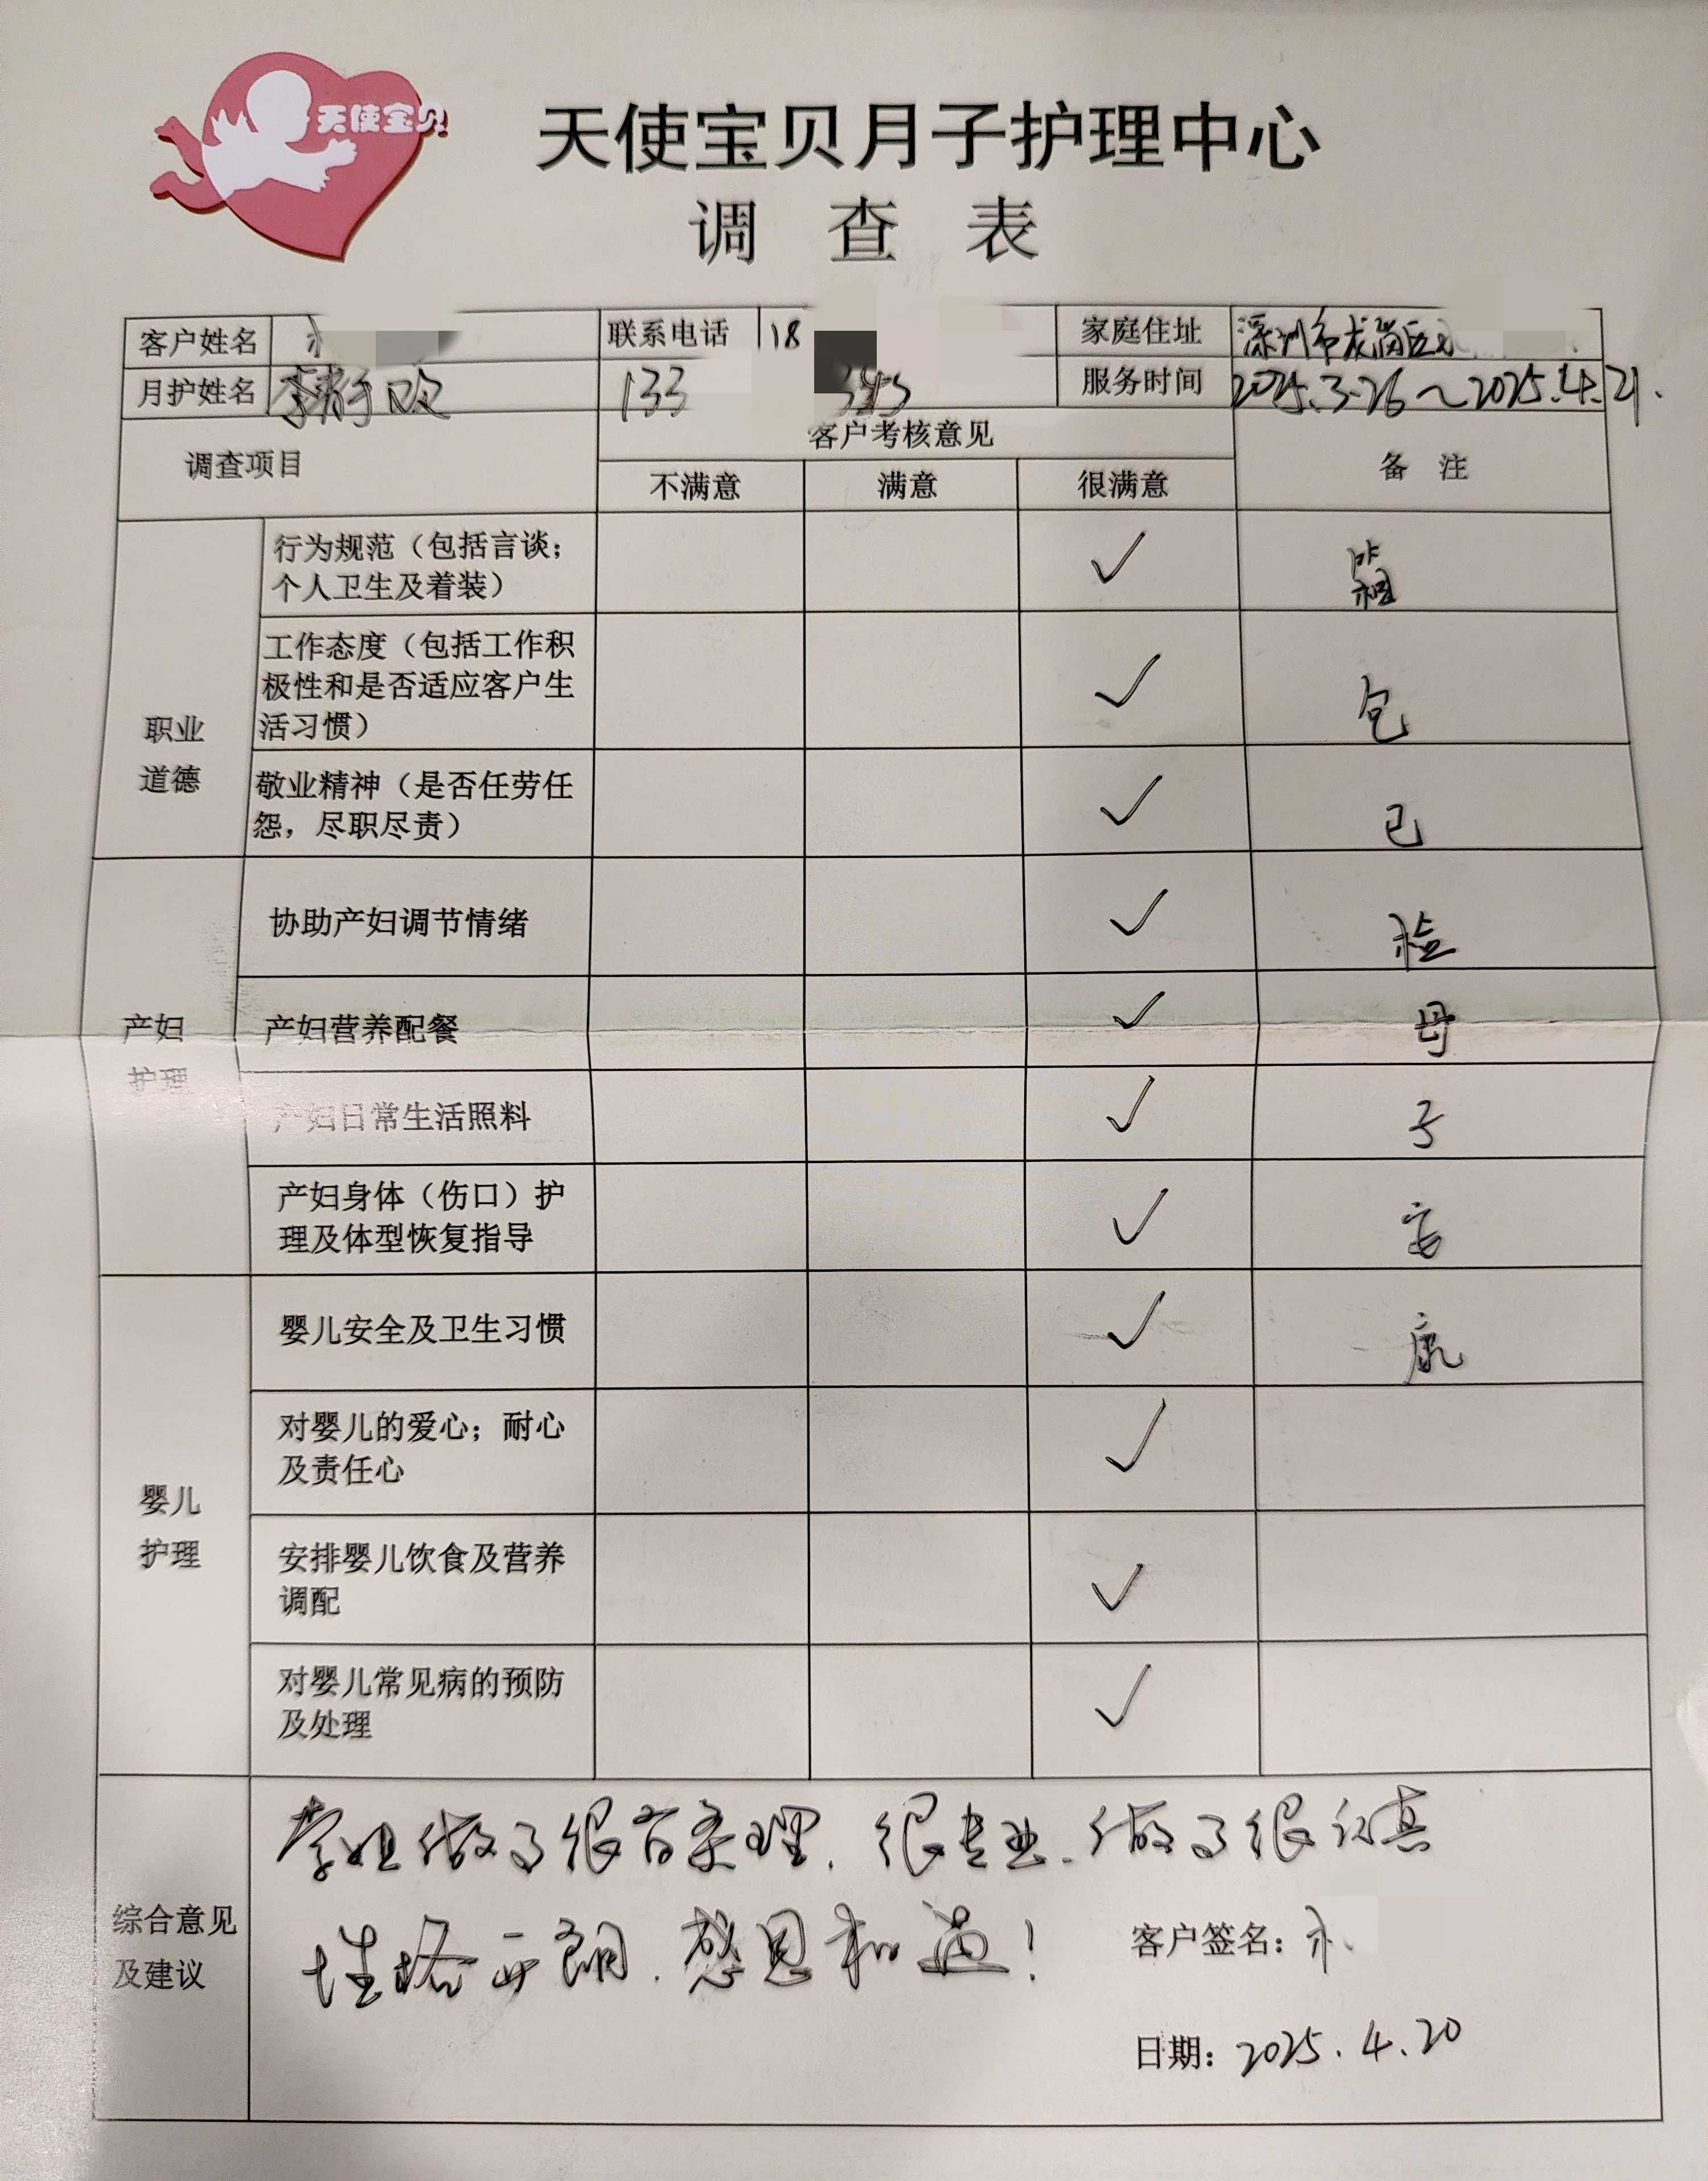 天使宝贝
天使宝贝月子护理中心
调 查 表
客户姓名 联系电话 18 家庭住址 深圳市龙岗区
月护姓名 李静 133 服务时间 2025.3.26～2025.4.21.
调查项目 客户考核意见 备 注
不满意 满意 很满意
职业
道德
行为规范（包括言谈；
个人卫生及着装）
✓
工作态度（包括工作积
极性和是否适应客户生
活习惯）
✓ 包
敬业精神（是否任劳任
怨，尽职尽责）
✓ 已
产妇
护理
协助产妇调节情绪 ✓ 检
产妇营养配餐 ✓ 母
产妇日常生活照料 ✓ 子
产妇身体（伤口）护
理及体型恢复指导
✓ 安
婴儿
护理
婴儿安全及卫生习惯 ✓ 康
对婴儿的爱心；耐心
及责任心
✓
安排婴儿饮食及营养
调配
✓
对婴儿常见病的预防
及处理
✓
综合意见
及建议
李姐做事很有条理. 很专业. 做事很认真
性格开朗. 感恩相遇！
客户签名：
日期：2025.4.20